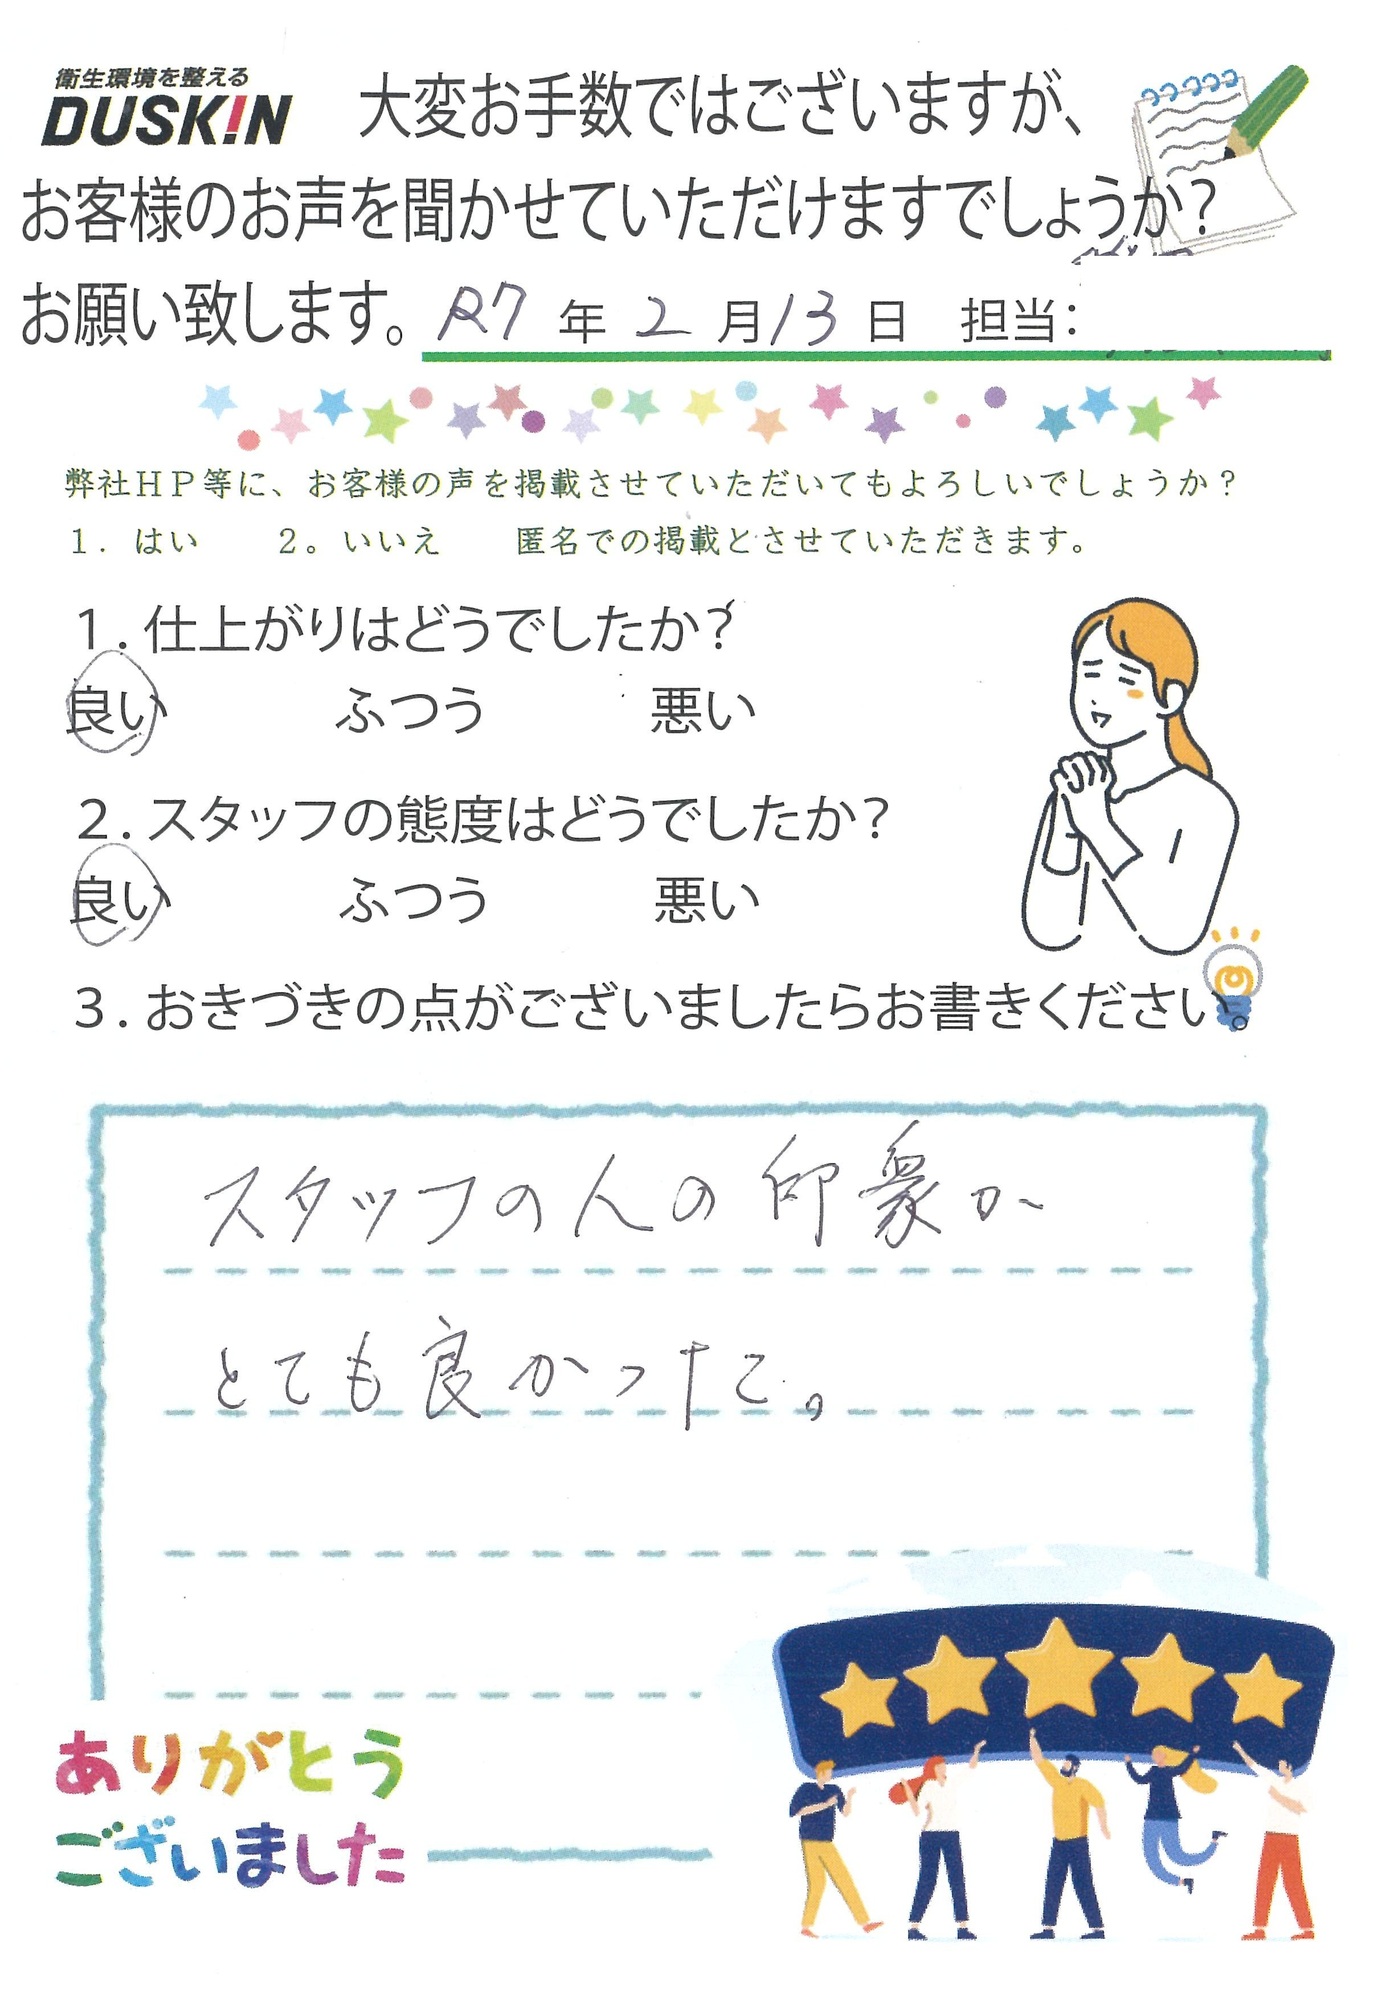 衛生環境を整える
DUSKIN
大変お手数ではございますが、
お客様のお声を聞かせていただけますでしょうか？
お願い致します。 R7 年 2 月 13 日 担当：
弊社ＨＰ等に、お客様の声を掲載させていただいてもよろしいでしょうか？
１．はい ２。いいえ 匿名での掲載とさせていただきます。
１．仕上がりはどうでしたか？
良い ふつう 悪い
２．スタッフの態度はどうでしたか？
良い ふつう 悪い
３．おきづきの点がございましたらお書きください。
スタッフの人の印象か
とても良かったで。
ありがとう
ございました